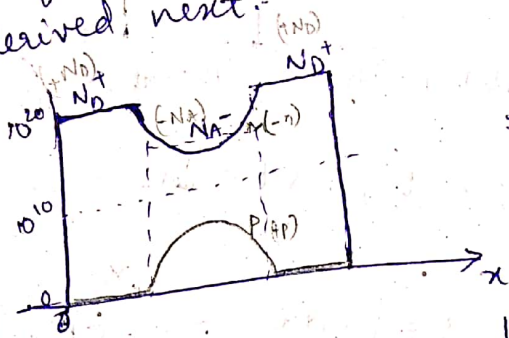 erived next.
(+ND) (+ND)
ND+ (-NA) NA- ND+
10^20 n(-n)
10^10 P(+P)
0
0 x